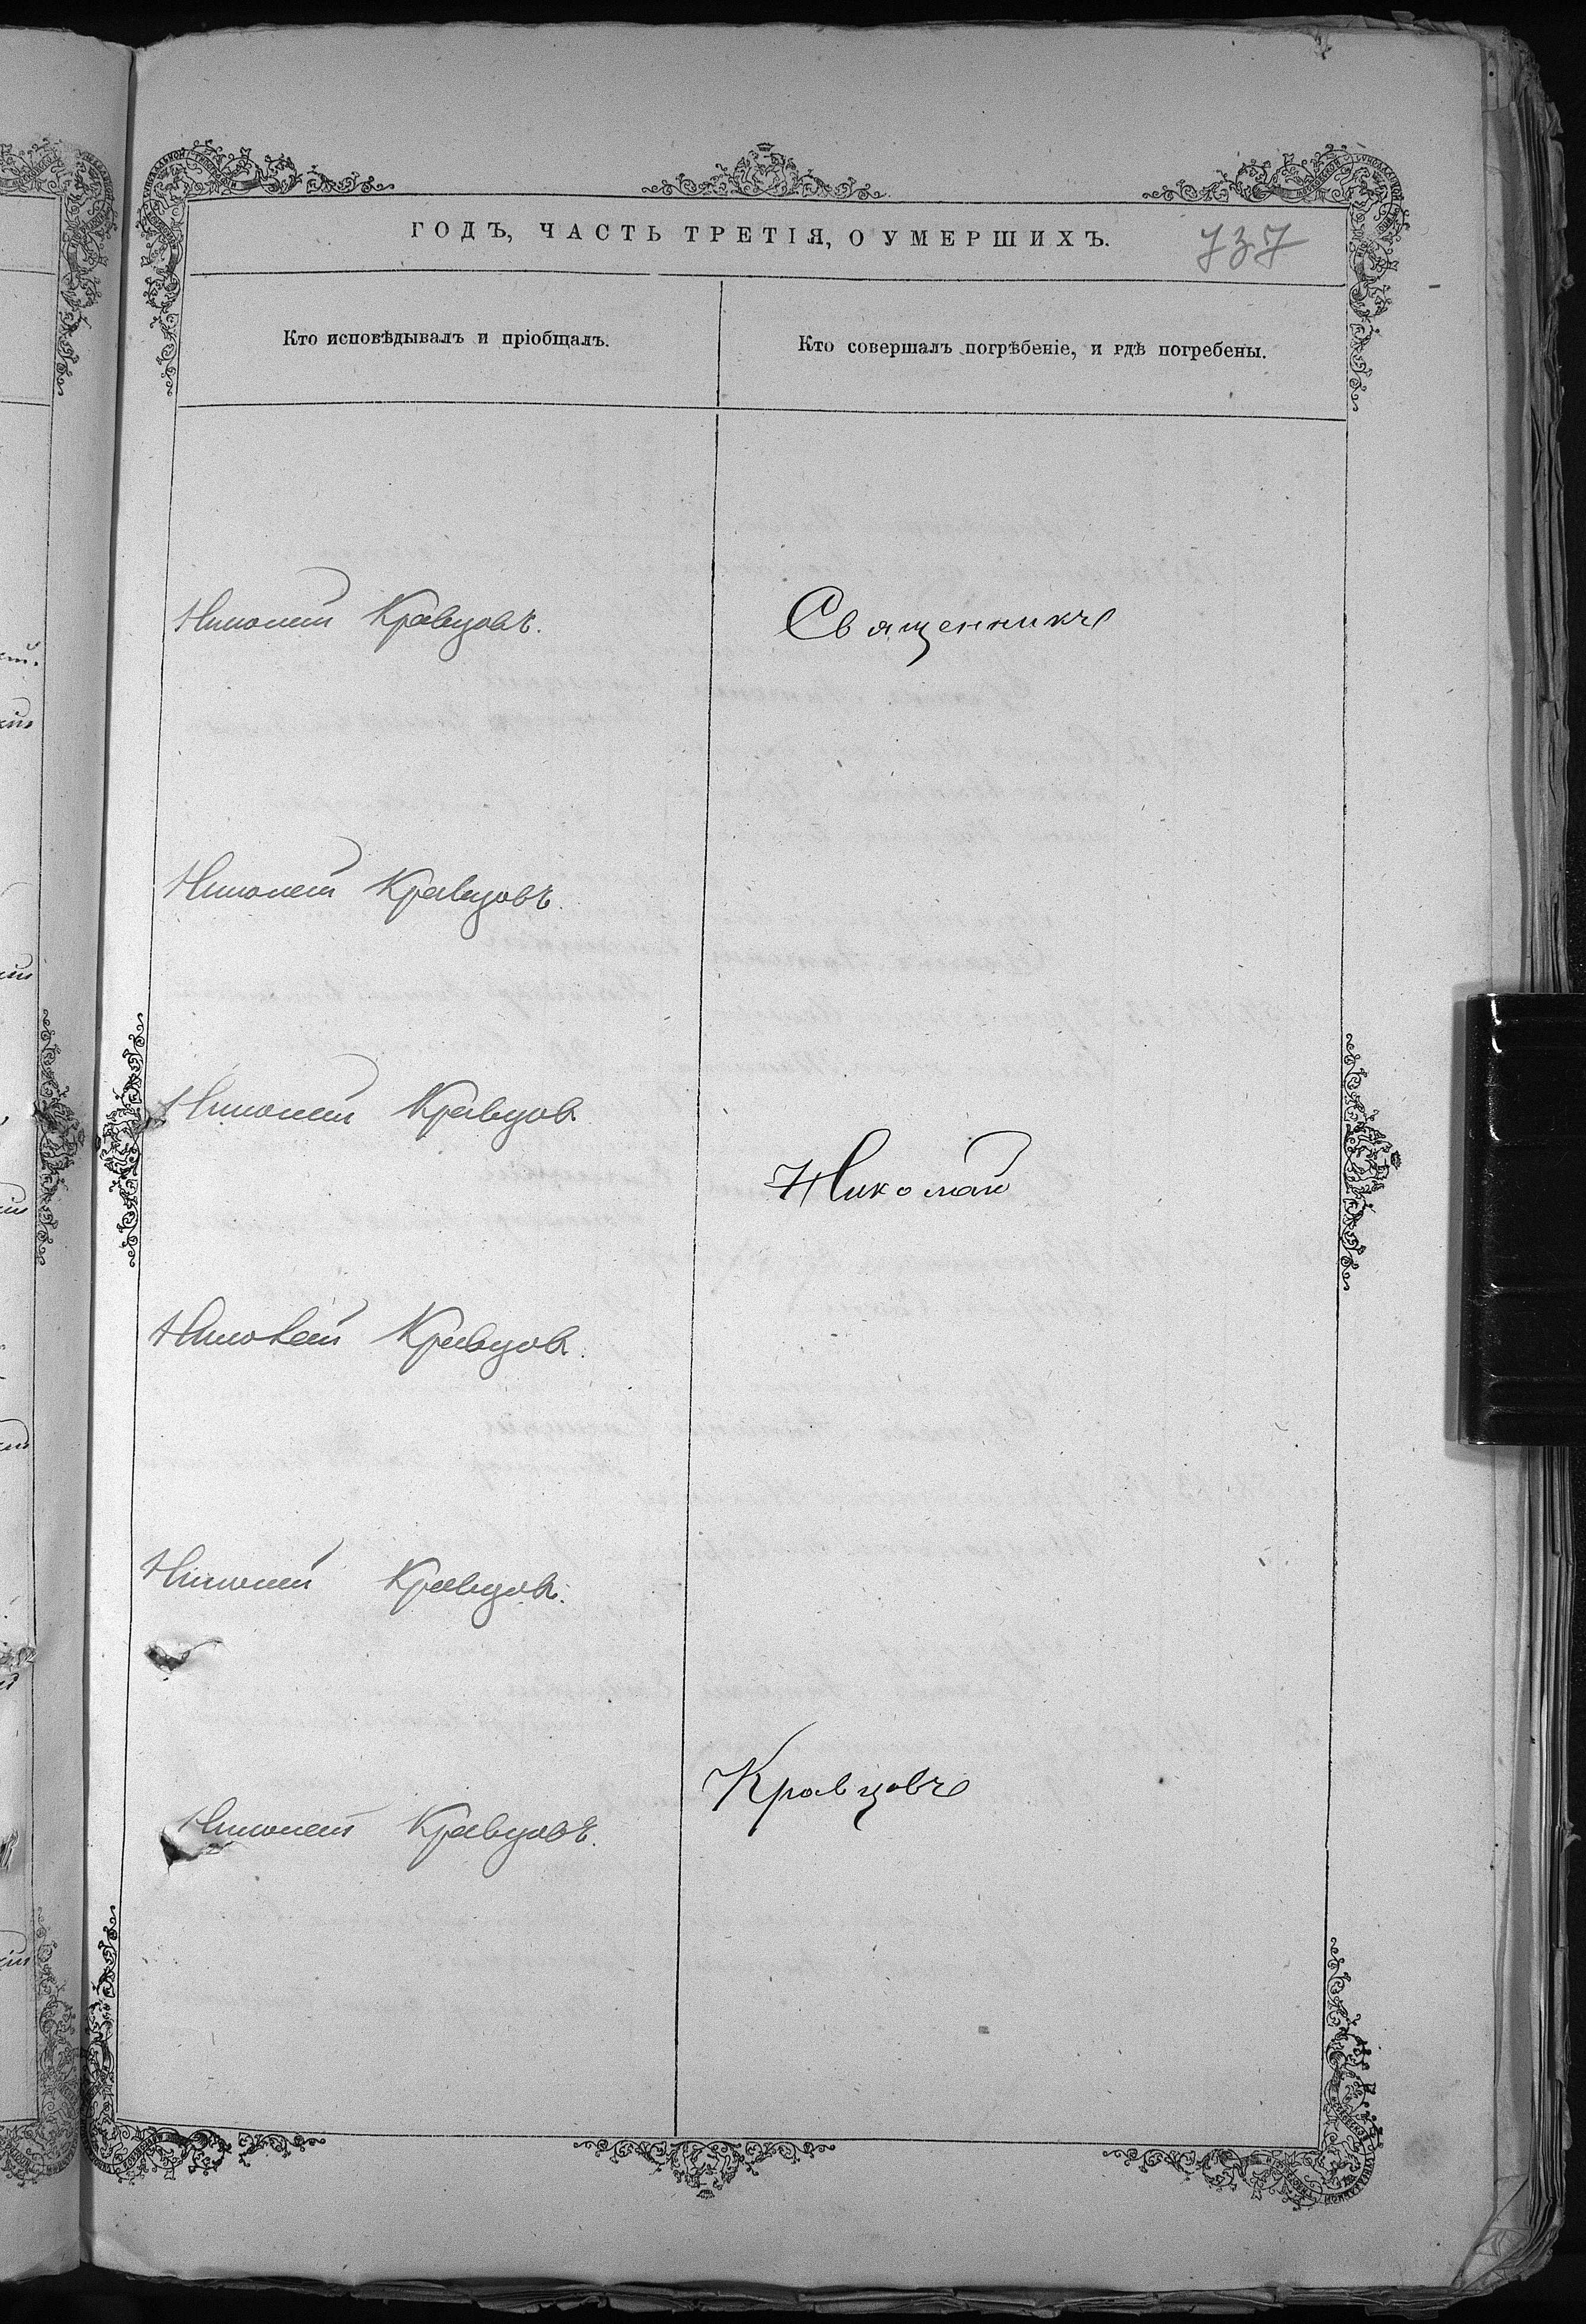 ГОДЪ, ЧАСТЬ ТРЕТІЯ, О УМЕРШИХЪ.
737
Кто исповѣдывалъ и пріобщалъ.
Кто совершалъ погрѣбеніе, и гдѣ погребены.
Николай Кравцовъ.
Священникъ
Николай Кравцовъ.
Николай Кравцовъ
Николай
Николай Кравцовъ.
Николай Кравцовъ.
Кравцовъ
Николай Кравцовъ.